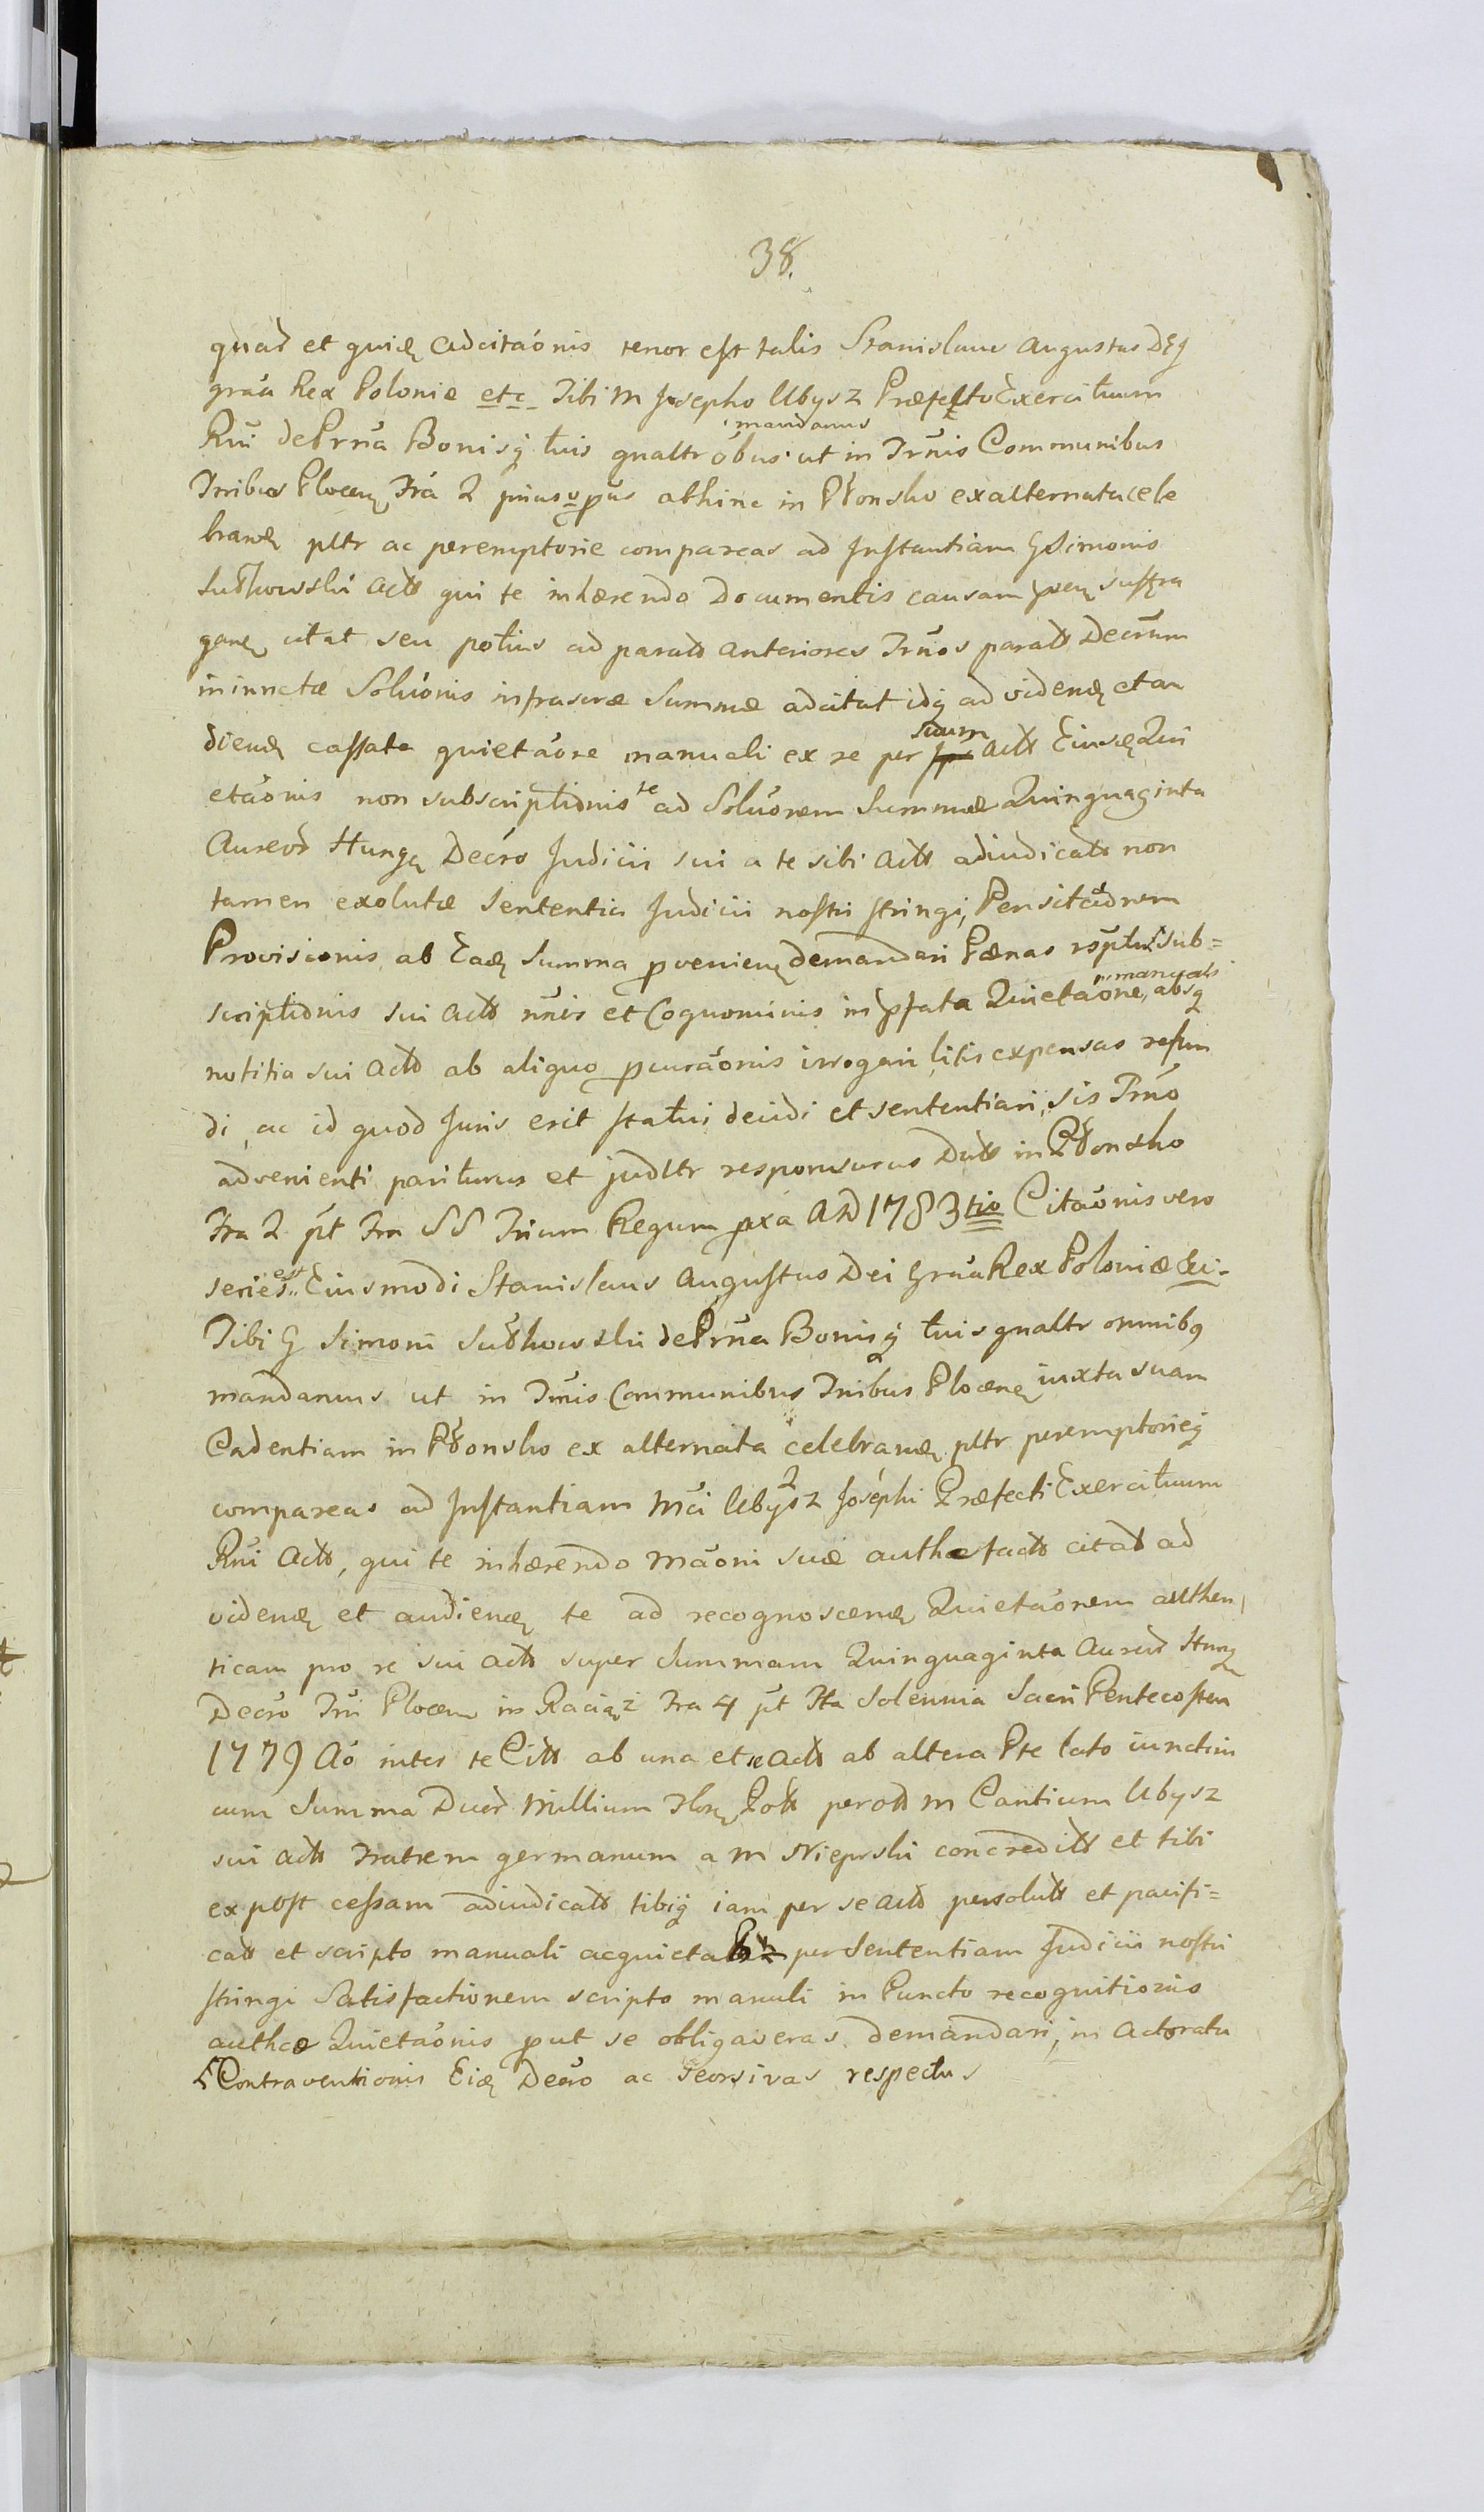 38.
quad et quide adcitaónis tenor est talis Stanislaus Augustus DEj
gráa Rex Poloniæ etc Tibi M Josepho Ubysz Præfecto Exercituum
Rni de Prna Bonisq tuis gnaltr óbus mandamus ut in Trnis Communibus
Tribus Plocen Fra 2 abhinc in Płonsko ex alternata cele
brand pltr ac peremptorie compareas ad Instantiam G Simonis
Sułkowski Actt qui te inhærendo Documentis causam suffra
gane citat seu potius ad paratt anteriores Trnos paratt Decrum
iniunctæ Soluónis infrascræ Summæ adcitat idq ad vidend et au
diend cassata quietáone manuali ex re per suum Actt Eiusd Qui
etáonis non subscriptiónis te ad Soluónem Summæ Quinquaginta
Aureor Hung Decro Judicii sui a te sibi Actt adiudicatt non
tamen exolutæ Sententia Judicii nostri stringi, Pensitaónem
Provisionis ab Ead Summa pveniend demandari Pænas rsptu sub=
scriptiónis sui Actt nnis et Cognominis in pfata Quietaóne manuali absq
notitia sui Actt ab aliquo pcuraónis irrogari litis expensas refun
di, ac id quod Juris erit statui decidi et sententiari, sis Trno
advenienti pariturus et judltr responsurus Datt in Płonsko
Fra 2 pt Fra SS Trium Regum pxa AD 1783 tio Citaónis vero
series est Eiusmodi Stanislaus Augustus Dei Gráa Rex Poloniæ &c.
Tibi G Simoni Sułkowski de Prna Bonisq tuis gnaltr omnibq
mandamus ut in Trnis Communibus Tribus Plocens iuxta suam
Cadentiam in Płonsko ex alternata celebrand pltr peremptorieq
compareas ad Instantiam Mci Ubysz Josephi Præfecti Exercituum
Rni Actt, qui te inhærendo Máoni suæ authæ factt citat ad
vidend et audiend te ad recognoscend Quietaónem authen
ticam pro re sui Actt super Summam Quinquaginta Aureor Hung
Decro Trii Plocen in Raciąż Fra 4 pt Fta Solennia Sacri Pentecosten
1779 Aó inter te Citt ab una et se Actt ab altera Pte lato iunctim
cum Summa Duor Millium Flor Pott per ott M Cantium Ubysz
sui Actt Fratrem germanum a M Niepski concreditt et tibi
ex post cessam adiudicatt tibiq iam per se Actt persolutt et pacifi=
catt et scripto manuali acquieta per Sententiam Judicii nostri
stringi Satisfactionem scripto manuli in Puncto recognitionis
authcæ Quietaónis put se obligaveras demandari, in Actoratu
Contraventionis Eid Decro ac seorsivas respectus